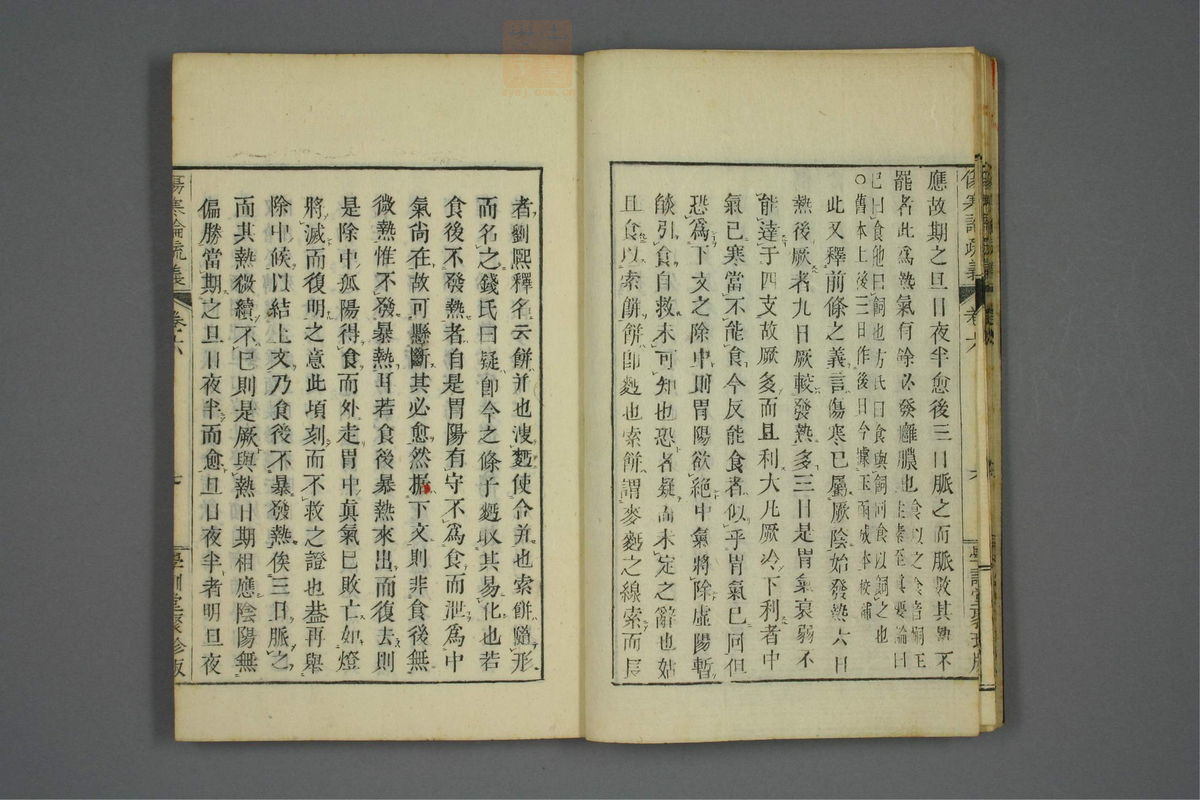 應故期之旦日夜半愈後三日脈之而脈數其熱不
罷者此爲熱氣有餘必發癰膿也食以之食音飼王
日食他曰飼也方氏曰食與飼同食以飼之也
○舊本上後三日作後日今據玉函成本校補
此又釋前條之義言傷寒已屬厥陰始發熱六日
熱後厥者九日厥較發熱多三日是胃氣衰弱不
能達于四支故厥多而且利大凡厥冷下利者中
氣已寒當不能食今反能食者似乎胃氣已回但
恐爲下文之除中則胃陽欲絕中氣將除虛陽暫
餤引食自救未可知也恐者疑而未定之辭也姑
且食以索餅餅卽麪也索餅謂麥麪之線索而長
傷寒論疏義
卷六
者劉熙釋名云餅并也溲麪使合并也索餅隨形
而名之錢氏曰疑卽今之條子麪取其易化也若
食後不發熱者自是胃陽有守不爲食而泄爲中
氣尙在故可懸斷其必愈然據下文則非食後無
微熱惟不發暴熱耳若食後暴熱來出而復去則
是除中孤陽得食而外走胃中眞氣已敗亡如燈
將滅而復明之意此頃刻而不救之證也葢再舉
除中候以結上文乃食後不暴發熱俟三日脈之
而其熱微續不已則是厥與熱日期相應陰陽無
偏勝當期之旦日夜半而愈旦日夜半者明旦夜
傷寒論疏義
卷六
七
學訓堂聚珍版